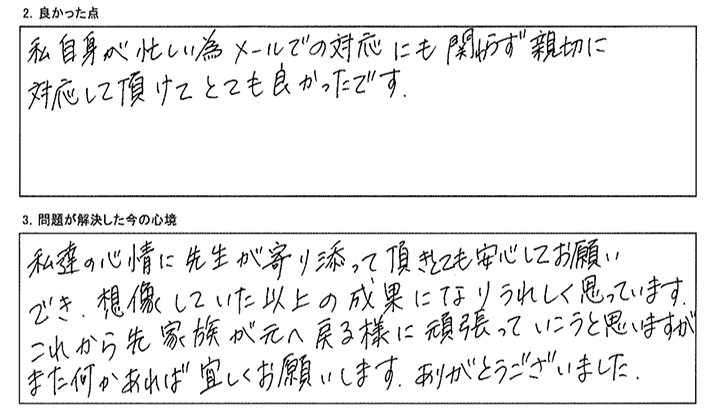 2. 良かった点
私自身が忙しい為メールでの対応にも関わらず親切に
対応して頂けてとても良かったです.
3. 問題が解決した今の心境
私達の心情に先生が寄り添って頂きとても安心してお願い
でき、想像していた以上の成果になりうれしく思っています.
これから先家族が元へ戻る様に頑張っていこうと思いますが
また何かあれば宜しくお願いします. ありがとうございました.